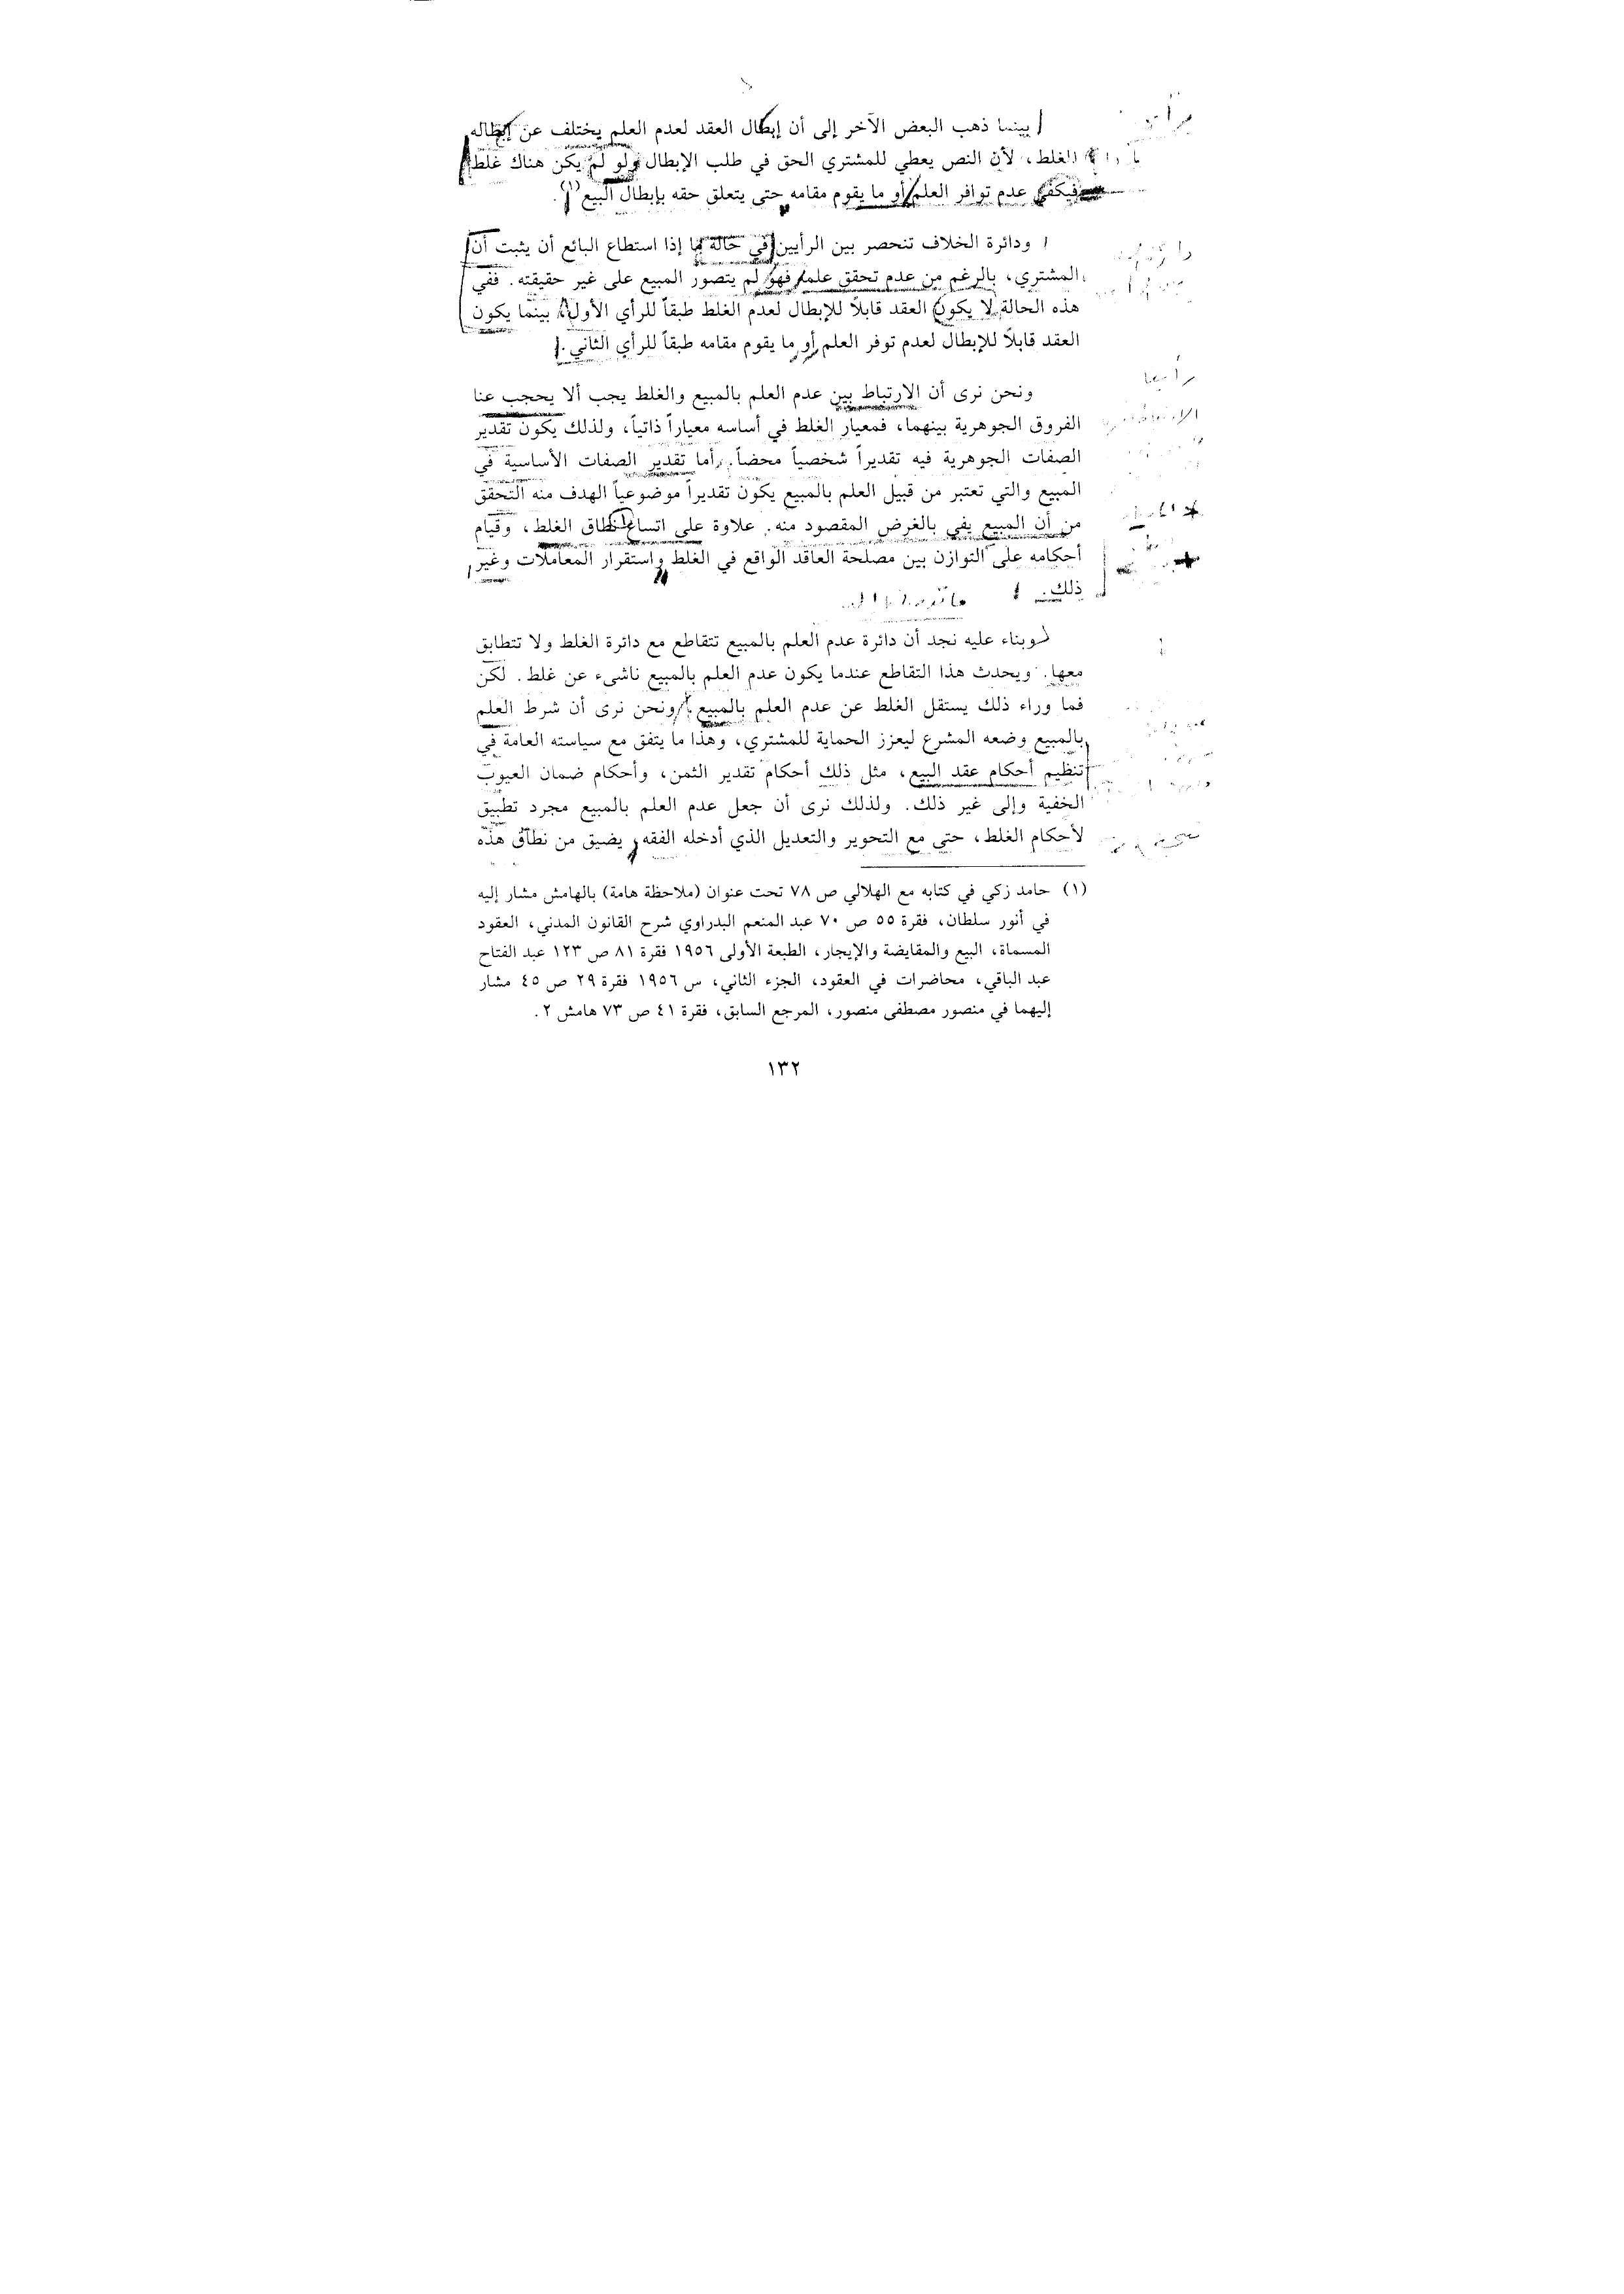 بينما ذهب البعض الآخر إلى أن إبطال العقد لعدم العلم يختلف عن إبطاله
الغلط، لأن النص يعطي للمشتري الحق في طلب الإبطال ولو لم يكن هناك غلط
فيكفي عدم توافر العلم أو ما يقوم مقامه حتى يتعلق حقه بإبطال البيع (١).
ودائرة الخلاف تنحصر بين الرأيين في حالة ما إذا استطاع البائع أن يثبت أن
المشتري، بالرغم من عدم تحقق علمه فهو لم يتصور المبيع على غير حقيقته. ففي
هذه الحالة لا يكون العقد قابلاً للإبطال لعدم الغلط طبقاً للرأي الأول، بينما يكون
العقد قابلاً للإبطال لعدم توفر العلم أو ما يقوم مقامه طبقاً للرأي الثاني.
ونحن نرى أن الارتباط بين عدم العلم بالمبيع والغلط يجب ألا يحجب عنا
الفروق الجوهرية بينهما، فمعيار الغلط في أساسه معياراً ذاتياً، ولذلك يكون تقدير
الصفات الجوهرية فيه تقديراً شخصياً محضاً. أما تقدير الصفات الأساسية في
المبيع والتي تعتبر من قبيل العلم بالمبيع يكون تقديراً موضوعياً الهدف منه التحقق
من أن المبيع يفي بالغرض المقصود منه. علاوة على اتساع نطاق الغلط، وقيام
أحكامه على التوازن بين مصلحة العاقد الواقع في الغلط واستقرار المعاملات وغير
ذلك.
وبناء عليه نجد أن دائرة عدم العلم بالمبيع تتقاطع مع دائرة الغلط ولا تتطابق
معها. ويحدث هذا التقاطع عندما يكون عدم العلم بالمبيع ناشىء عن غلط. لكن
فما وراء ذلك يستقل الغلط عن عدم العلم بالمبيع، ونحن نرى أن شرط العلم
بالمبيع وضعه المشرع ليعزز الحماية للمشتري، وهذا ما يتفق مع سياسته العامة في
تنظيم أحكام عقد البيع، مثل ذلك أحكام تقدير الثمن، وأحكام ضمان العيوب
الخفية وإلى غير ذلك. ولذلك نرى أن جعل عدم العلم بالمبيع مجرد تطبيق
لأحكام الغلط، حتى مع التحوير والتعديل الذي أدخله الفقه، يضيق من نطاق هذه
(١) حامد زكي في كتابه مع الهلالي ص ٧٨ تحت عنوان (ملاحظة هامة) بالهامش مشار إليه
في أنور سلطان، فقرة ٥٥ ص ٧٠ عبد المنعم البدراوي شرح القانون المدني، العقود
المسماة، البيع والمقايضة والإيجار، الطبعة الأولى ١٩٥٦ فقرة ٨١ ص ١٢٣ عبد الفتاح
عبد الباقي، محاضرات في العقود، الجزء الثاني، س ١٩٥٦ فقرة ٢٩ ص ٤٥ مشار
إليهما في منصور مصطفى منصور، المرجع السابق، فقرة ٤١ ص ٧٣ هامش ٢.
١٣٢